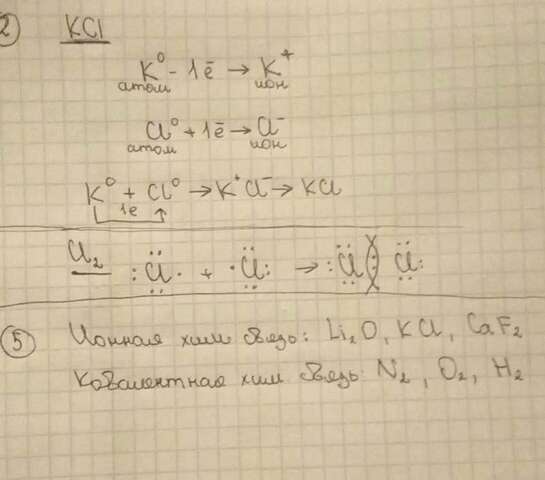 2 KCl
K⁰ - 1ē → K⁺
атом ион
Cl⁰ + 1ē → Cl⁻
атом ион
K⁰ + Cl⁰ → K⁺Cl⁻ → KCl
1ē
Cl₂ :Cl· + ·Cl: → :Cl:Cl:
5 Ионная хим связь: Li₂O, KCl, CaF₂
Ковалентная хим связь: N₂, O₂, H₂